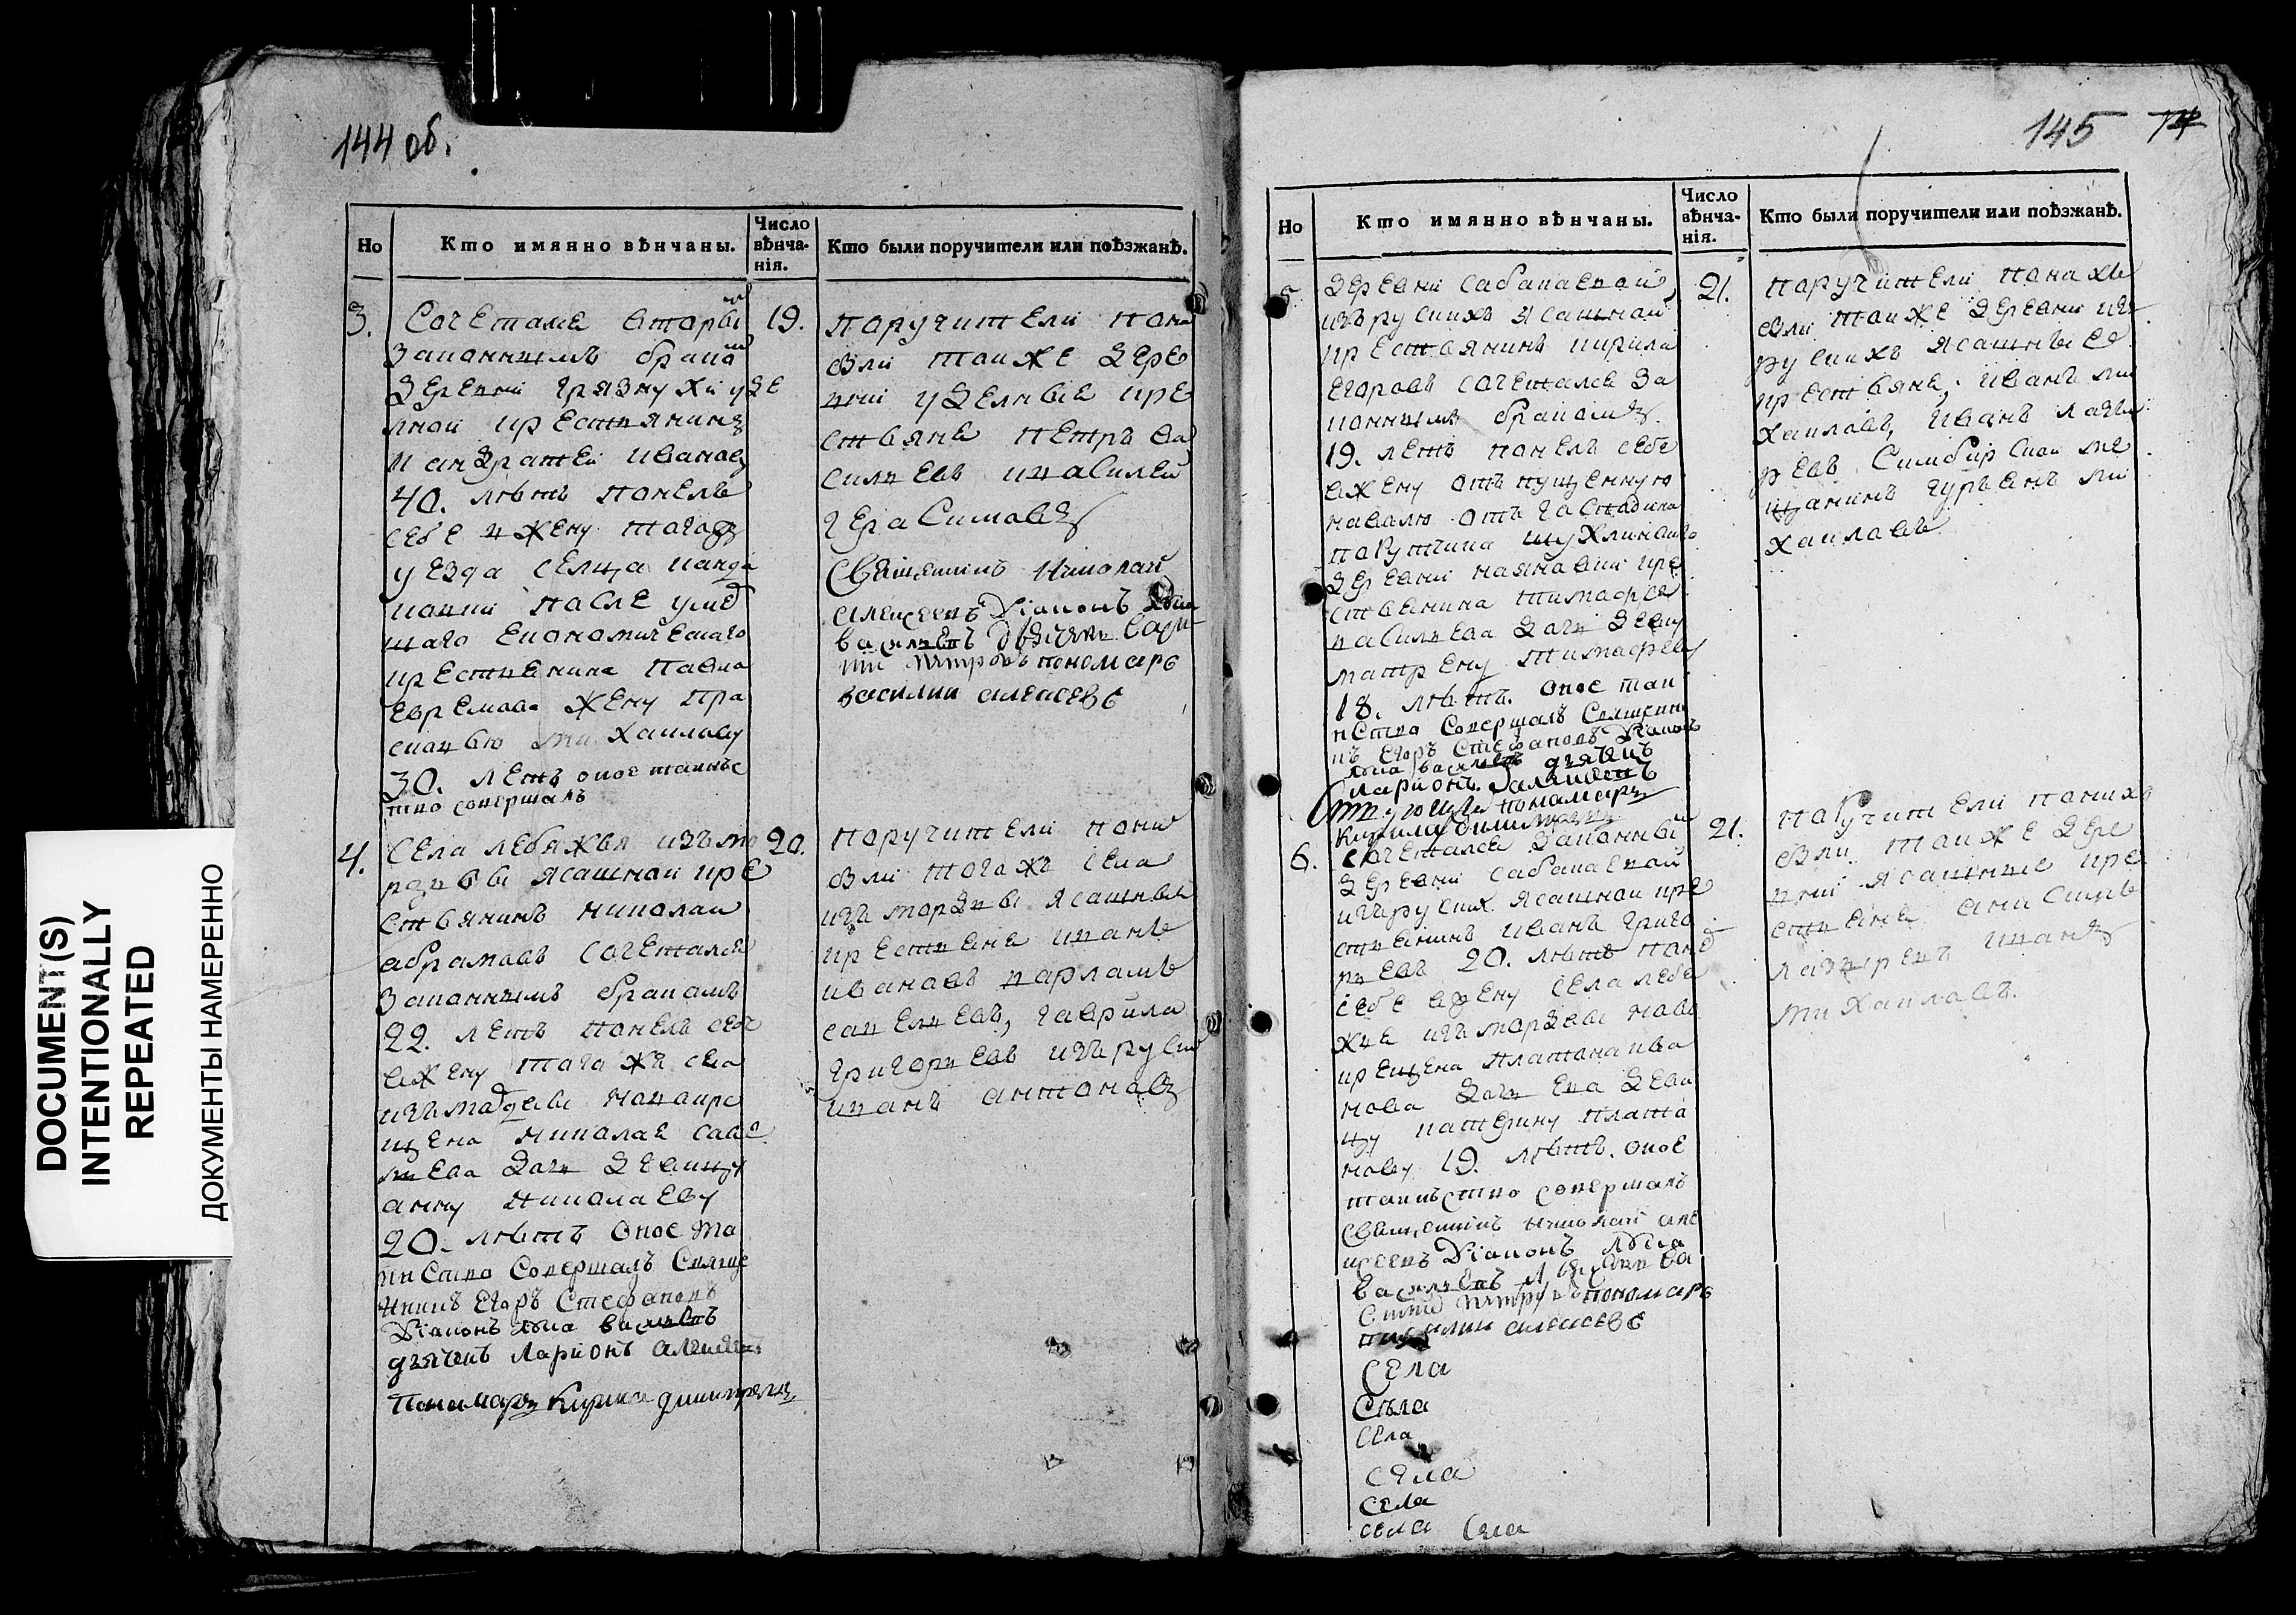 144 об.
Но
Кто имянно вѣнчаны.
Число вѣнча-нія.
Кто были поручители или поѣзжанѣ.
3.
Сочеталса вторы
законнымъ брако
деревни грязнухи уде
лной крестьянинъ
кандратей ивановъ
40. лѣтъ понелъ
себе вжену тогожъ
уезда селца
после умер
шаго економическаго
крестьянина павла
ефремова жену пра
сковью михаилову
30. летъ оное таинс
тво совершалъ
19.
поручители пони
были тоиже дере
вни уделныя кре
стьяне петръ ва
силевъ ивасилей
герасимовъ
Священникъ Николай
алексеевъ Діаконъ яковъ
василевъ
петровъ пономарь
василий алексеевъ
4.
села лебяжья изъмо
рдвы ясашной кре
стьянинъ николаи
абрамовъ сочеталса
законнымъ бракомъ
22. летъ понелъ себе
вжену того же села
измордвы новокре
щена николая саве
лева дочь девицу
анну николаеву
20. лѣтъ оное та
инство совершалъ свяще
нникъ Егоръ Стефановъ
Діаконъ яковъ василевъ
дьячекъ Ларионъ
пономарь Кирила димитревъ
20.
поручители пони
были того же села
изъ мордвы ясашныя
крестьяне иванъ
ивановъ варламъ
савелевъ, гаврила
григоревъ изъ руских
иванъ антоновъ
DOCUMENT(S)
INTENTIONALLY
REPEATED
ДОКУМЕНТЫ НАМЕРЕННО
145
Но
Кто имянно вѣнчаны.
Число вѣнча-нія.
Кто были поручители или поѣзжанѣ.
5
деревни сабакаевой
изъруских ясашной
крестьянинъ кирила
егоровъ сочеталса за
коннымъ бракомъ
19. летъ понелъ себе
вжену отпущенную
наволю отъ господина
порутчика
деревни наяновки кре
стьянина тимофея
василева дочь девку
матрену тимофееву
18. лѣтъ. оное таи
нство совершалъ священн
икъ Егоръ Стефановъ Діаконъ
яковъ василевъ дьячекъ
ларионъ
пономарь
Кирила димитревъ
21.
поручители понихъ
были тоиже деревни изъ
руских ясашныя
крестьяне, иванъ ми
хаиловъ, иванъ лаза
ревъ Симбирской ме
щанинъ гурьянъ ми
хаиловъ
6.
сочеталса законны
деревни сабакаевой
изъруских ясашной кре
стьянинъ иванъ григо
ревъ 20. лѣтъ поне
себе вжену села лебе
жья изъ мордвы ново
крещена платона ива
нова дочь ево деви
цу катерину плато
нову 19. лѣтъ. оное
таинство совершалъ
священникъ николай але
ксеевъ Діаконъ яковъ
василевъ
петровъ пономарь
василии алексеевъ
21.
поручители пониха
были тоиже дере
вни ясашные кре
стьяне анисимъ
лазаревъ иванъ
михаиловъ.
села
Села
села
села
села
села села